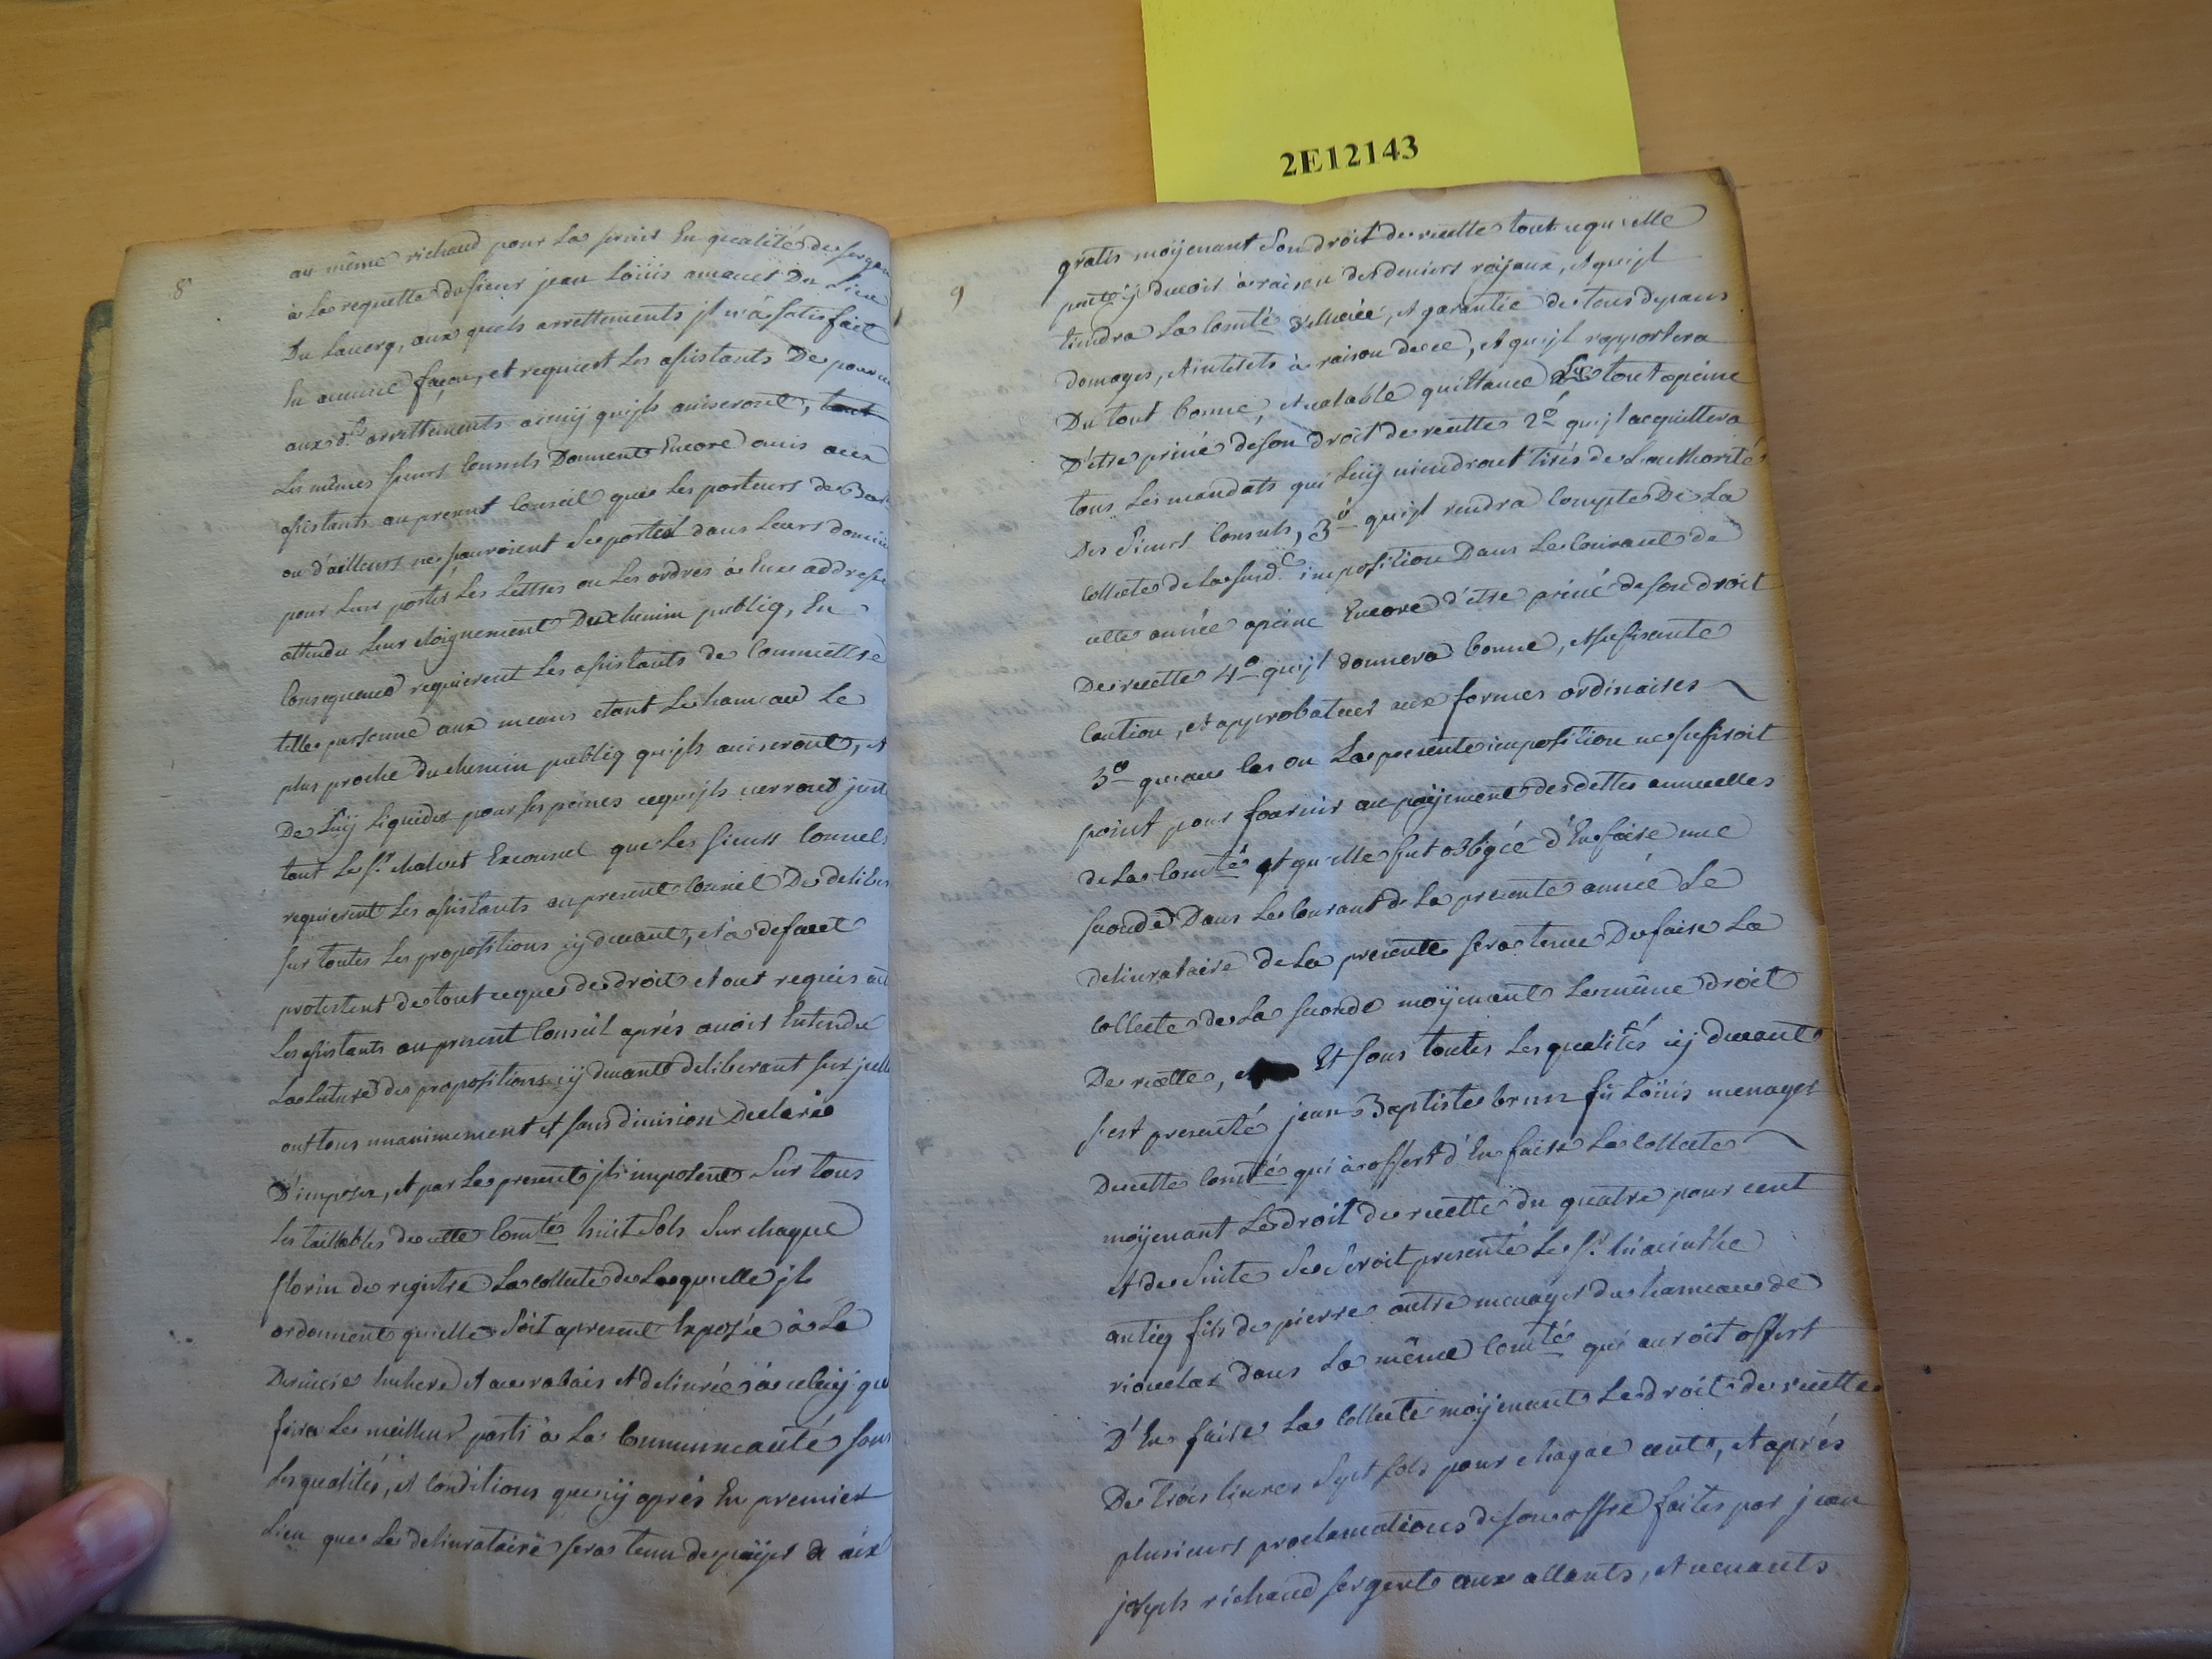 2E12143
8
au même richaud pour La servir En qualité de sergen
à La requette du sieur jean Loüis amauet Du Lieu
Du Lauerq, aux quels arrettements jl n'à satisfait
En aucune façon, et requiert Les assistants De pouru
aux d.ts arrettements ainsÿ qu'jls auiseront, tout
Les mêmes sieurs Consuls Donnent Encore auis aux
assistants au present Conseil que Les porteurs de Bar
ou d'ailleurs ne sauroient se porter dans Leurs domici
pour Leur porter Les Lettres ou Les ordres à Eux addresse
attendu Leur eloignement Du chemin publiq, En
Consequence requierent Les assistants de Commettre
telle personne aux means etant Le hameau Le
plus proche du chemin publiq qu'jls auiseront, et
De Luÿ Liquider pour ses peines ce qu'jls verront just
tant Le sr. chaluet Exconsul que Les sieurs Consuls
requierent Les assistants au present Conseil De deliber
sur toutes Les propositions cÿ deuant, et à defaut
protestent de tout ce que de droit et ont requis act
Les assistants au present Conseil aprés auoir Entendu
La Lecture des propositions cÿ deuant deliberant sur jcelle
ont tous unanimement et sans diuision Declaré
D'imposer, et par Le present jls imposent Sur tous
Les taillables de cette Com.té huit Sols Sur chaque
florin de registre La collecte de Laquelle jls
ordonnent qu'elle Soit apresent Exposée à La
Derniere Enchere et au rabais et deliurée à celuÿ qu
fera Le meilleur parti à La Communeauté sous
Les qualités, et Conditions que cÿ aprés En premier
Lieu que Le deliurataire sera tenu de païer à aix
9
gratis moÿenant Son droit de recette tout ce qu'elle
peut ÿ deuoir à raison des deniers roÿaux, et qu'jl
tiendra La Com.té releuée, et garantie de tous depans
domages, et interets à raison de ce, et qu'jl rapportera
Du tout bonne, et valable quittance Le tout apeine
D'etre priué de son droit de recette 2o qu'jl acquittera
tous Les mandats qui Luÿ viendront tirés de L'authorité
Des Sieurs Consuls, 3o qu'jl rendra Compte De La
Collecte de La susd.e imposition Dans Le Courant de
cette année apeine Encore d'etre priué de son droit
De recette 4o qu'jl donnera bonne, et sufisante
Caution, et approbateur aux formes ordinaires
3o qu'au Cas ou La presente imposition ne sufisoit
point pour fournir au païement des dettes annuelles
de La Com.té et qu'elle fut obligée d'En faire une
seconde Dans Le Courant de La presente année Le
deliurataire de La presente sera tenu De faire La
Collecte de La seconde moÿenant Le même droit
De recette, Et sous toutes Les qualités cÿ deuant
s'est presenté jean Baptiste brun fû Loüis menager
De cette Com.té qui à offert d'En faire La Collecte
moÿenant Le droit de recette du quatre pour cent
et de Suite Se Seroit presenté Le Sr. hiacinthe
antiq fils de pierre autre menager du hameau de
rioudar dans La même Com.té qui auroit offert
D'En faire La Collecte moÿenant Le droit de recette
De Trois Liures Sept Sols pour chaque cent, et aprés
plusieurs proclamations de son offre faites par jean
joseph richaud sergent aux allants, et venants